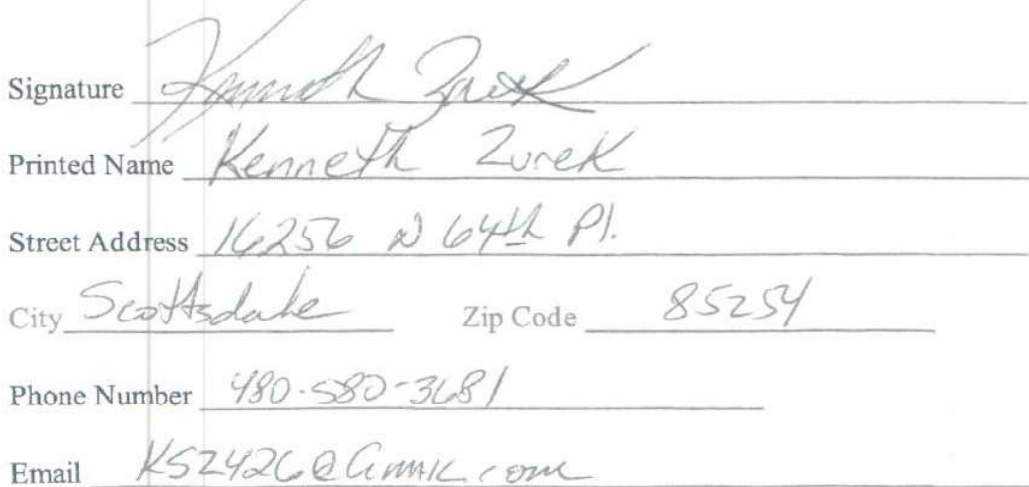 Signature Kenneth Zurek
Printed Name Kenneth Zurek
Street Address 16256 N 64th Pl.
City Scottsdale Zip Code 85254
Phone Number 480-580-3681
Email KSZ426@Gmail.com